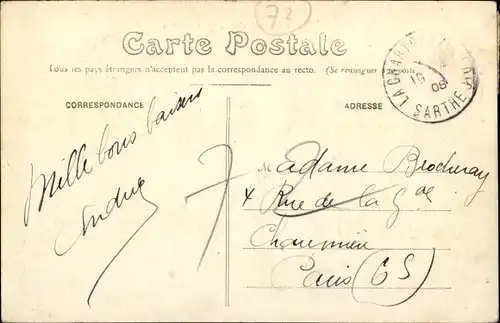 72
Carte Postale
Tous les pays étrangers n'acceptent pas la correspondance au recto. (Se renseigner à la poste)
CORRESPONDANCE
ADRESSE
LA CHARTRE
SARTHE
Mille bons baisers
André
7
Madame Brocheray
4 Rue de la Gde
Chaumière
Paris